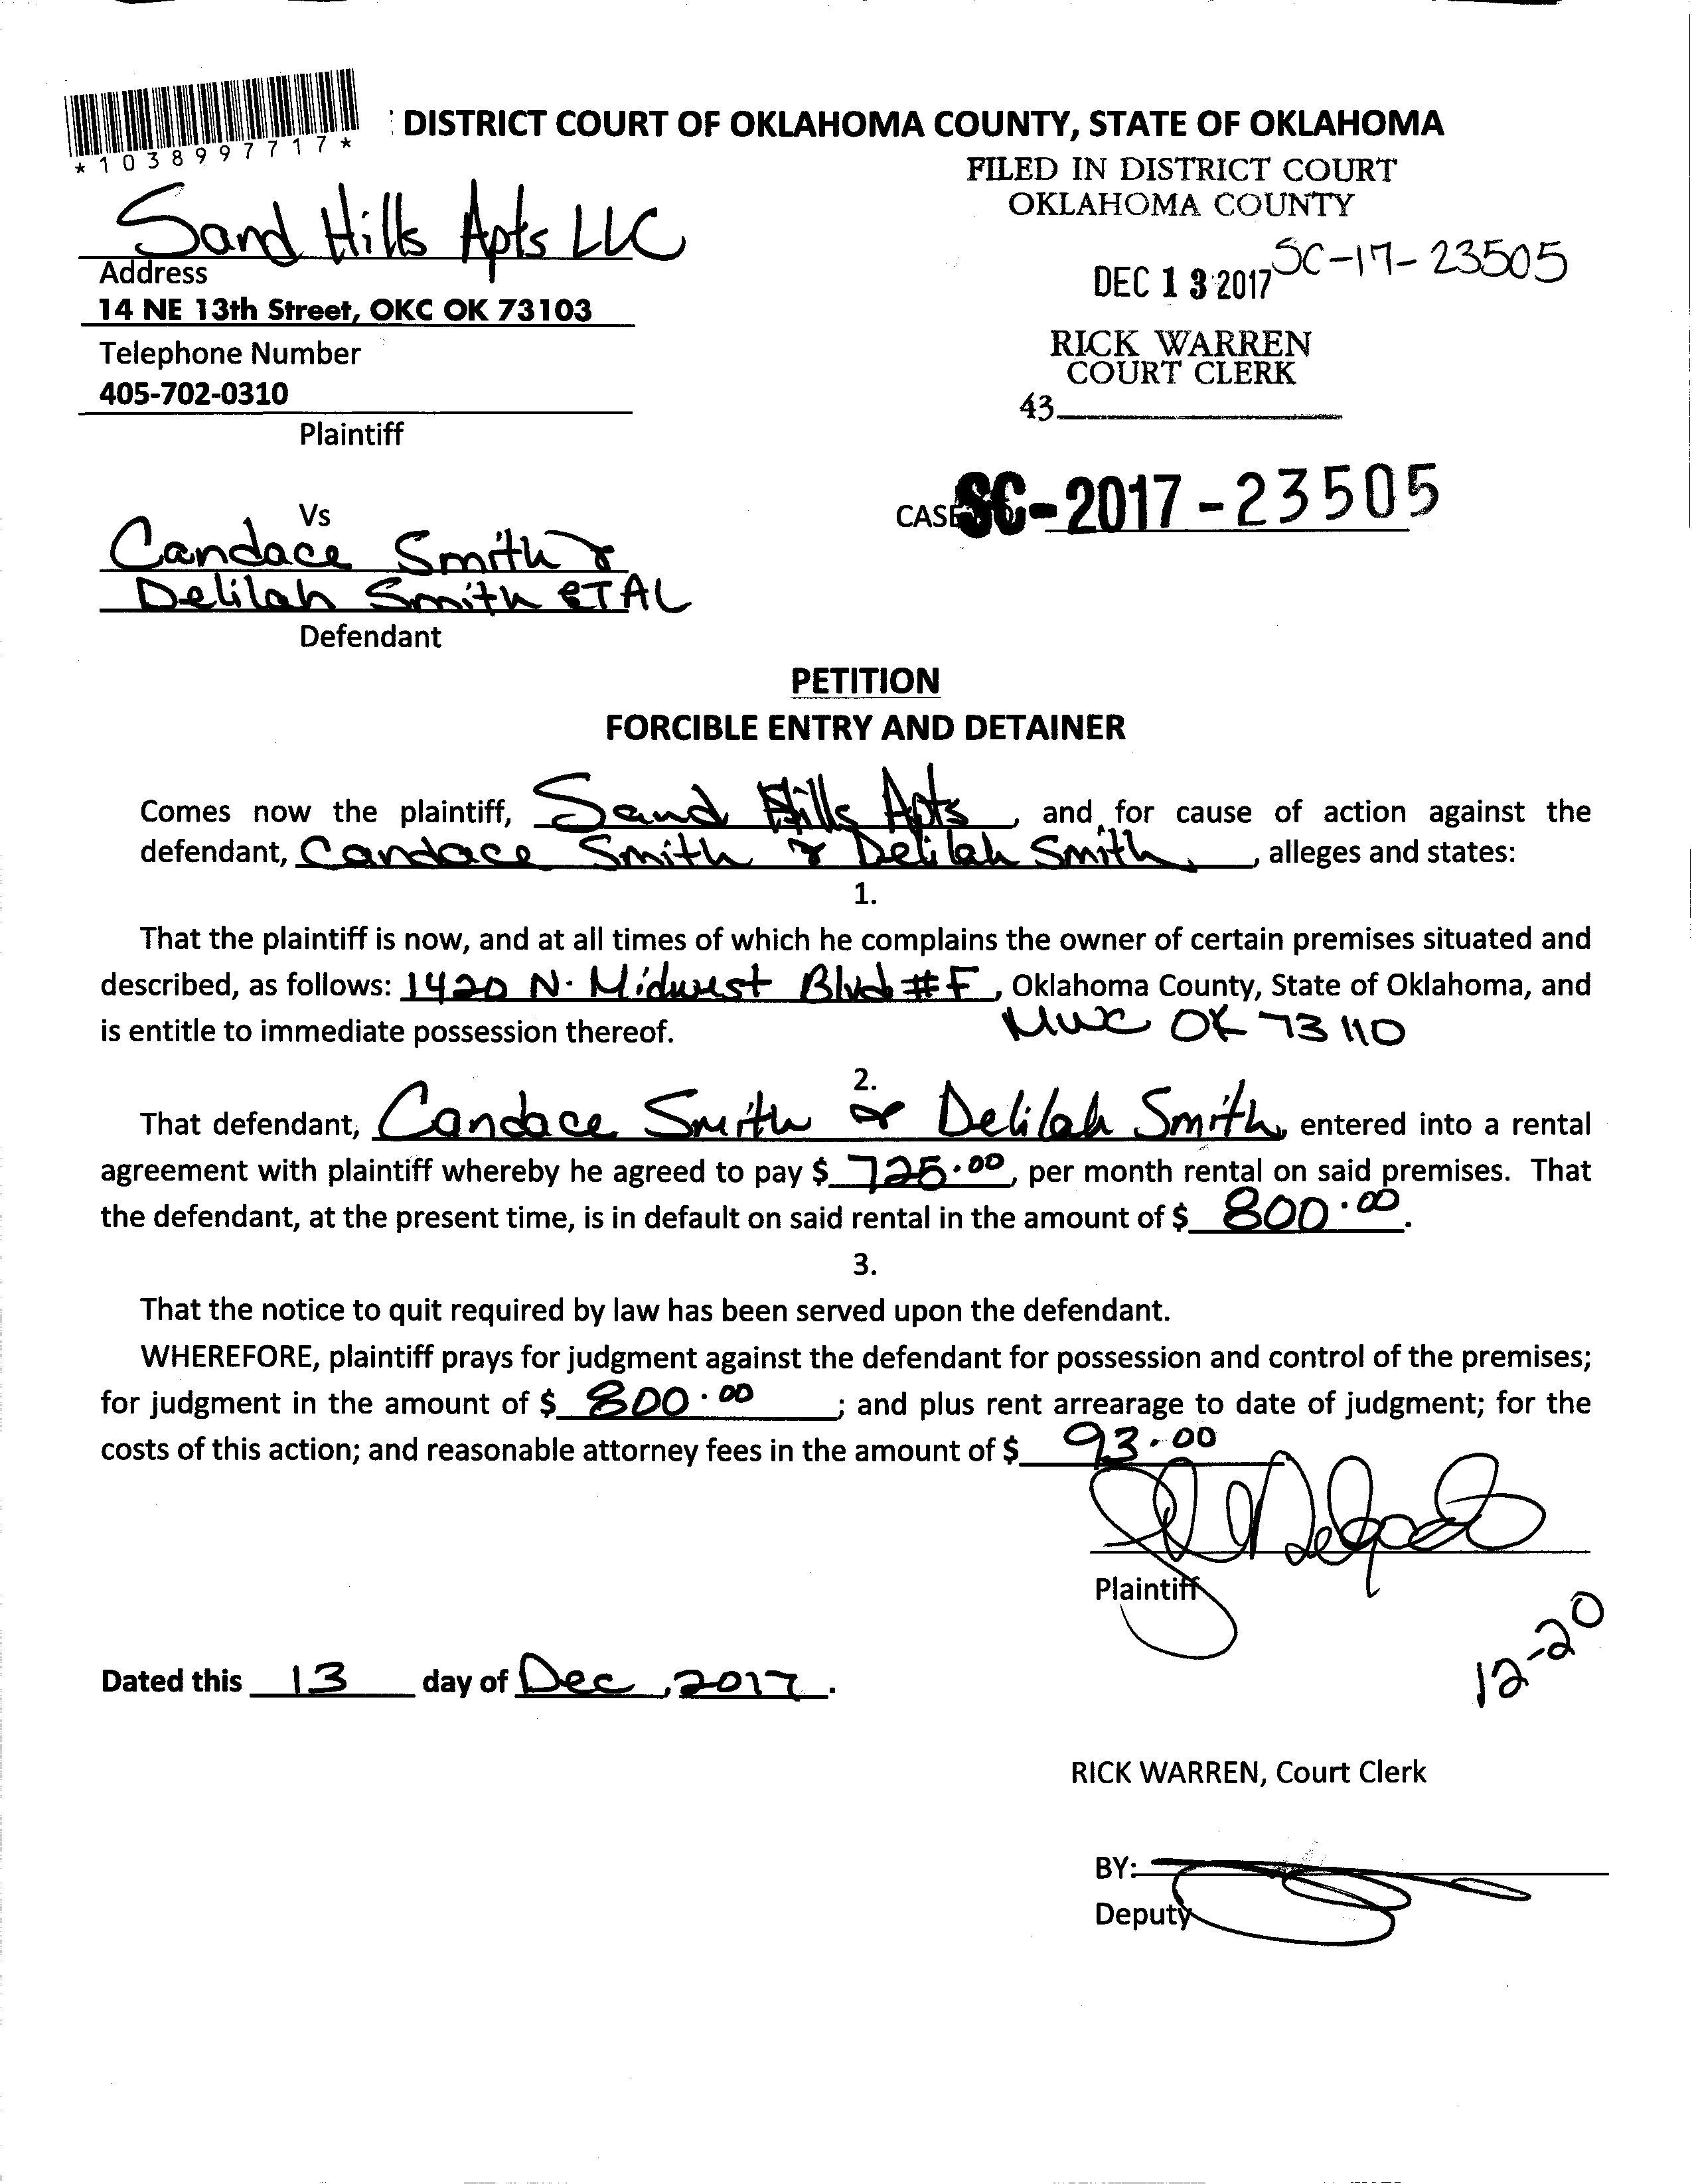 *1038997717*
DISTRICT COURT OF OKLAHOMA COUNTY, STATE OF OKLAHOMA
FILED IN DISTRICT COURT
OKLAHOMA COUNTY
Sand Hills Apts LLC
SC-17-23505
DEC 13 2017
Address
14 NE 13th Street, OKC OK 73103
RICK WARREN
COURT CLERK
Telephone Number
405-702-0310
43
Plaintiff
CASE SC-2017-23505
Vs
Candace Smith &
Delilah Smith ETAL
Defendant
PETITION
FORCIBLE ENTRY AND DETAINER
Comes now the plaintiff, Sand Hills Apts, and for cause of action against the
defendant, Candace Smith & Delilah Smith, alleges and states:
1.
That the plaintiff is now, and at all times of which he complains the owner of certain premises situated and
described, as follows: 1420 N. Midwest Blvd #F, Oklahoma County, State of Oklahoma, and
is entitle to immediate possession thereof. MWC OK 73110
2.
That defendant, Candace Smith & Delilah Smith, entered into a rental
agreement with plaintiff whereby he agreed to pay $ 725.00, per month rental on said premises. That
the defendant, at the present time, is in default on said rental in the amount of $ 800.00.
3.
That the notice to quit required by law has been served upon the defendant.
WHEREFORE, plaintiff prays for judgment against the defendant for possession and control of the premises;
for judgment in the amount of $ 800.00; and plus rent arrearage to date of judgment; for the
costs of this action; and reasonable attorney fees in the amount of $ 93.00
Plaintiff
12-20
Dated this 13 day of Dec, 2017.
RICK WARREN, Court Clerk
BY:
Deputy